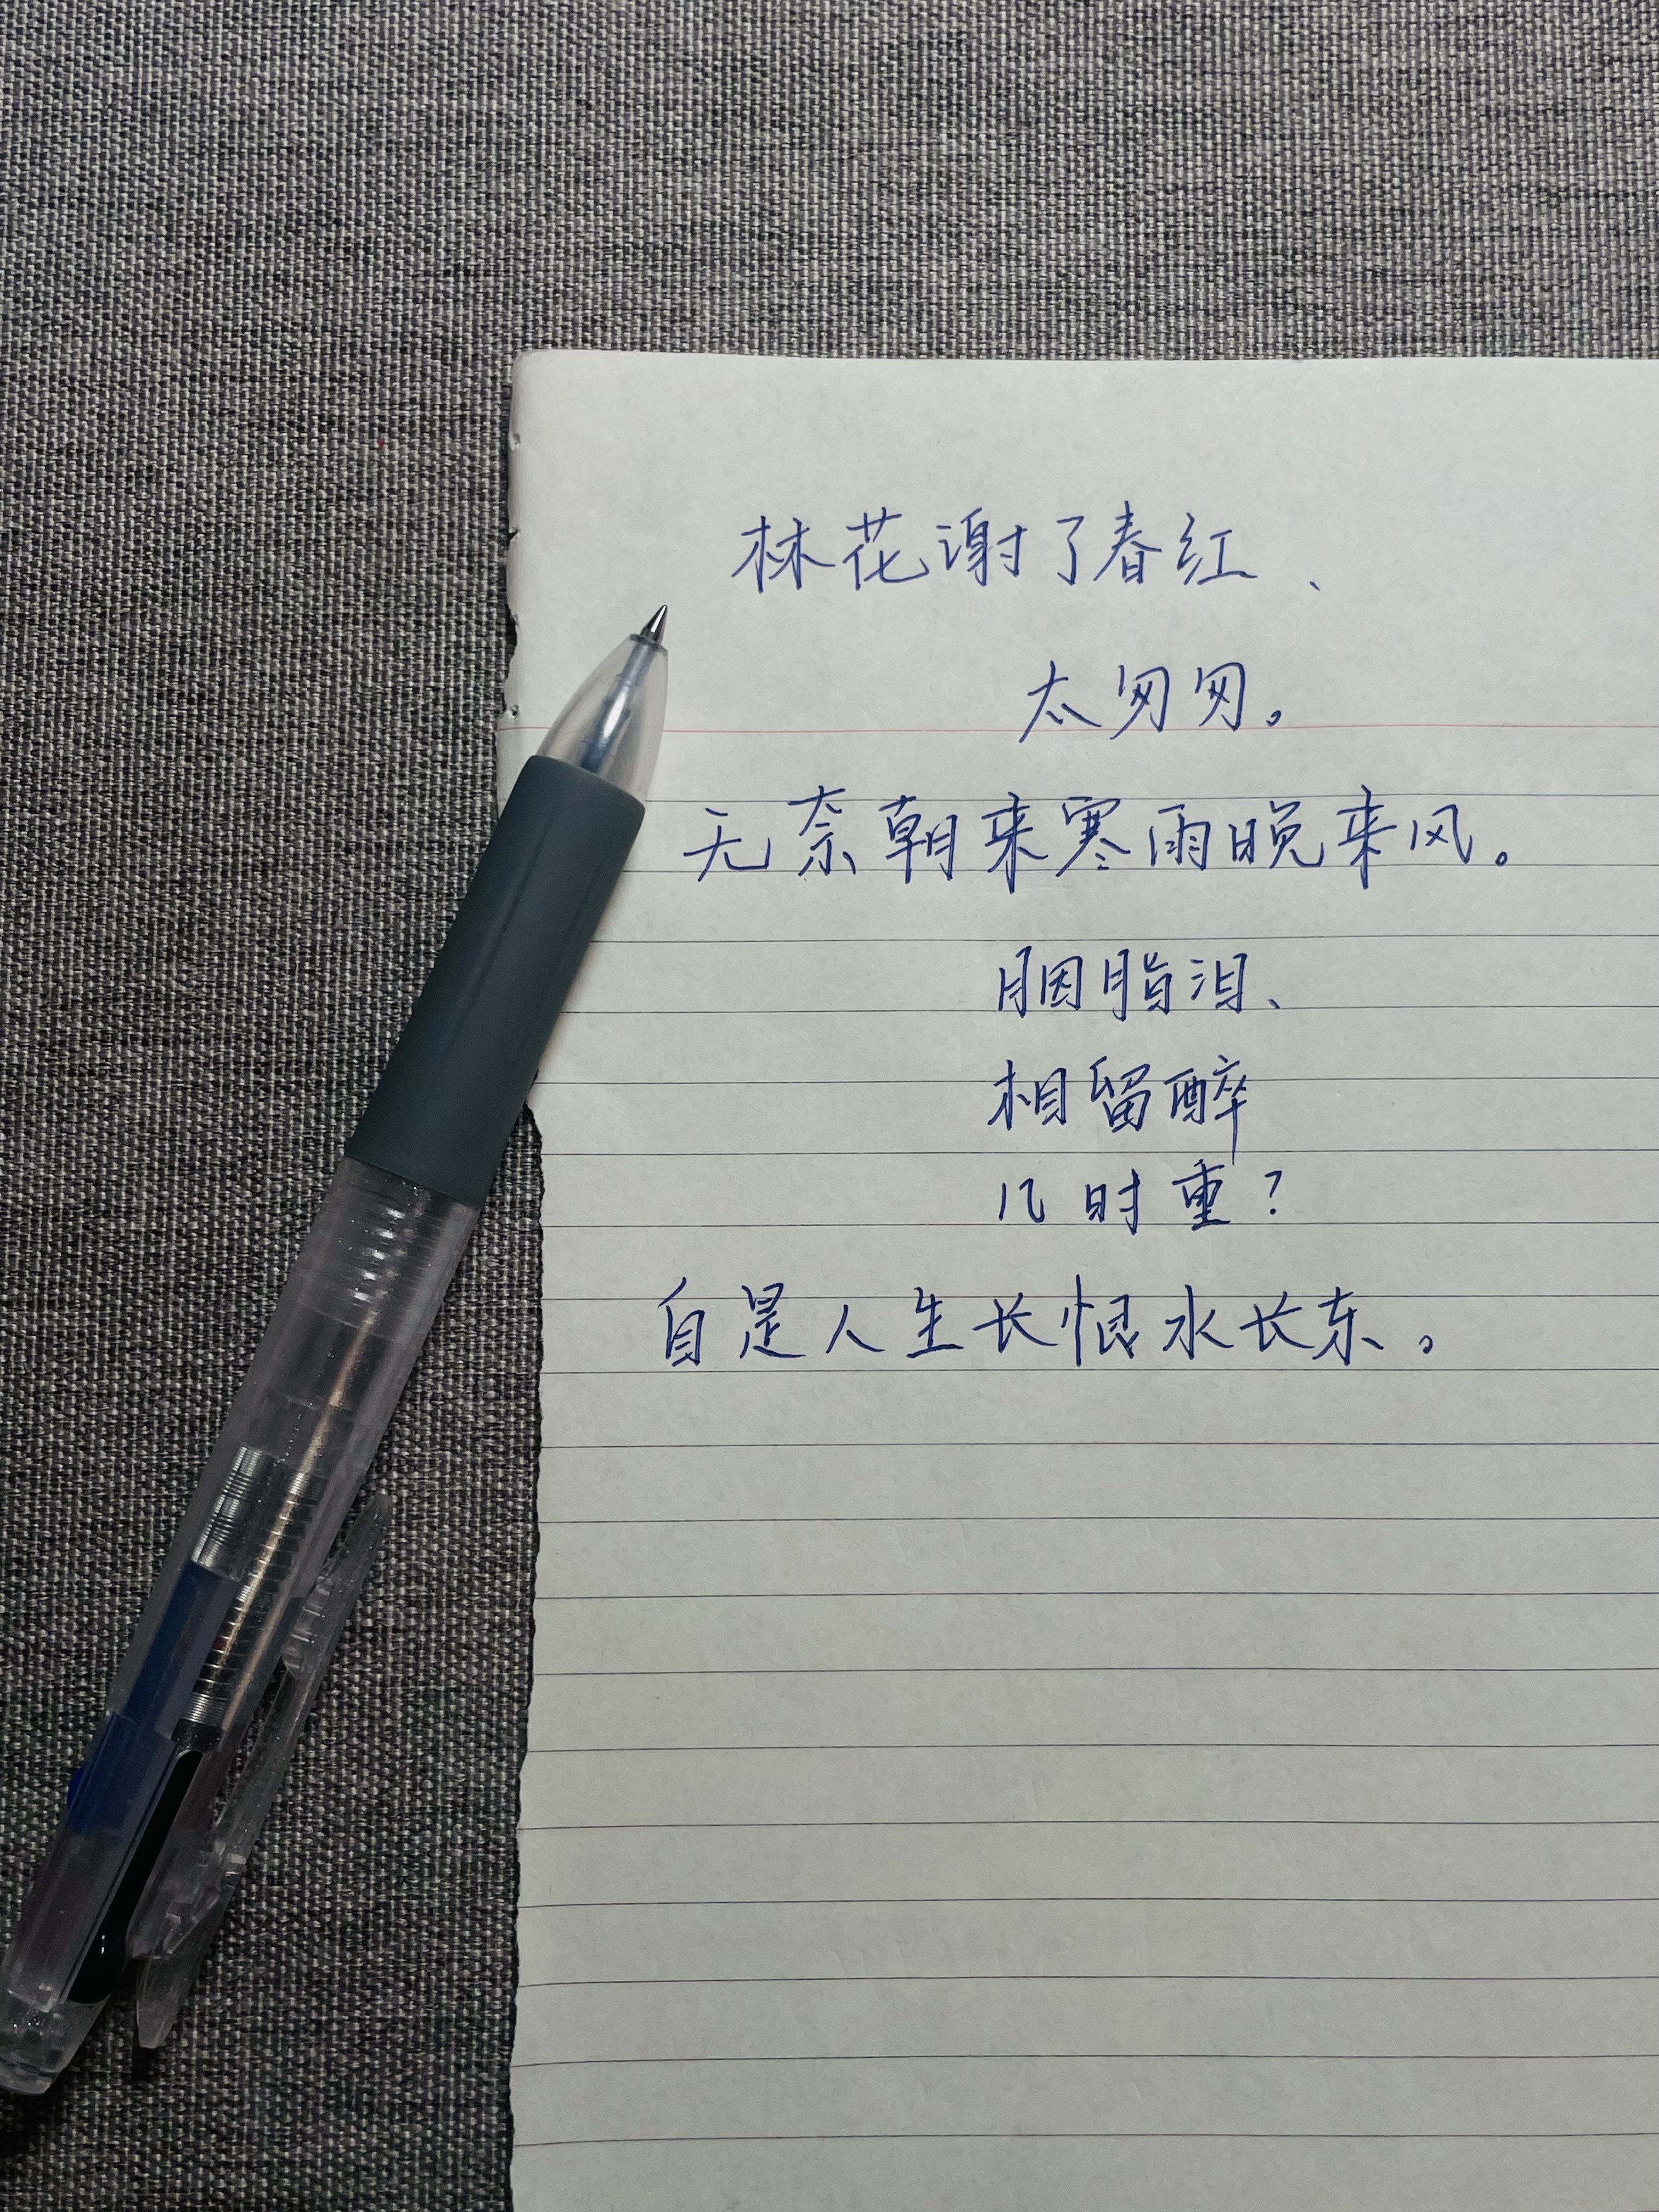 林花谢了春红、
太匆匆。
无奈朝来寒雨晚来风。
胭脂泪、
相留醉
几时重?
自是人生长恨水长东。